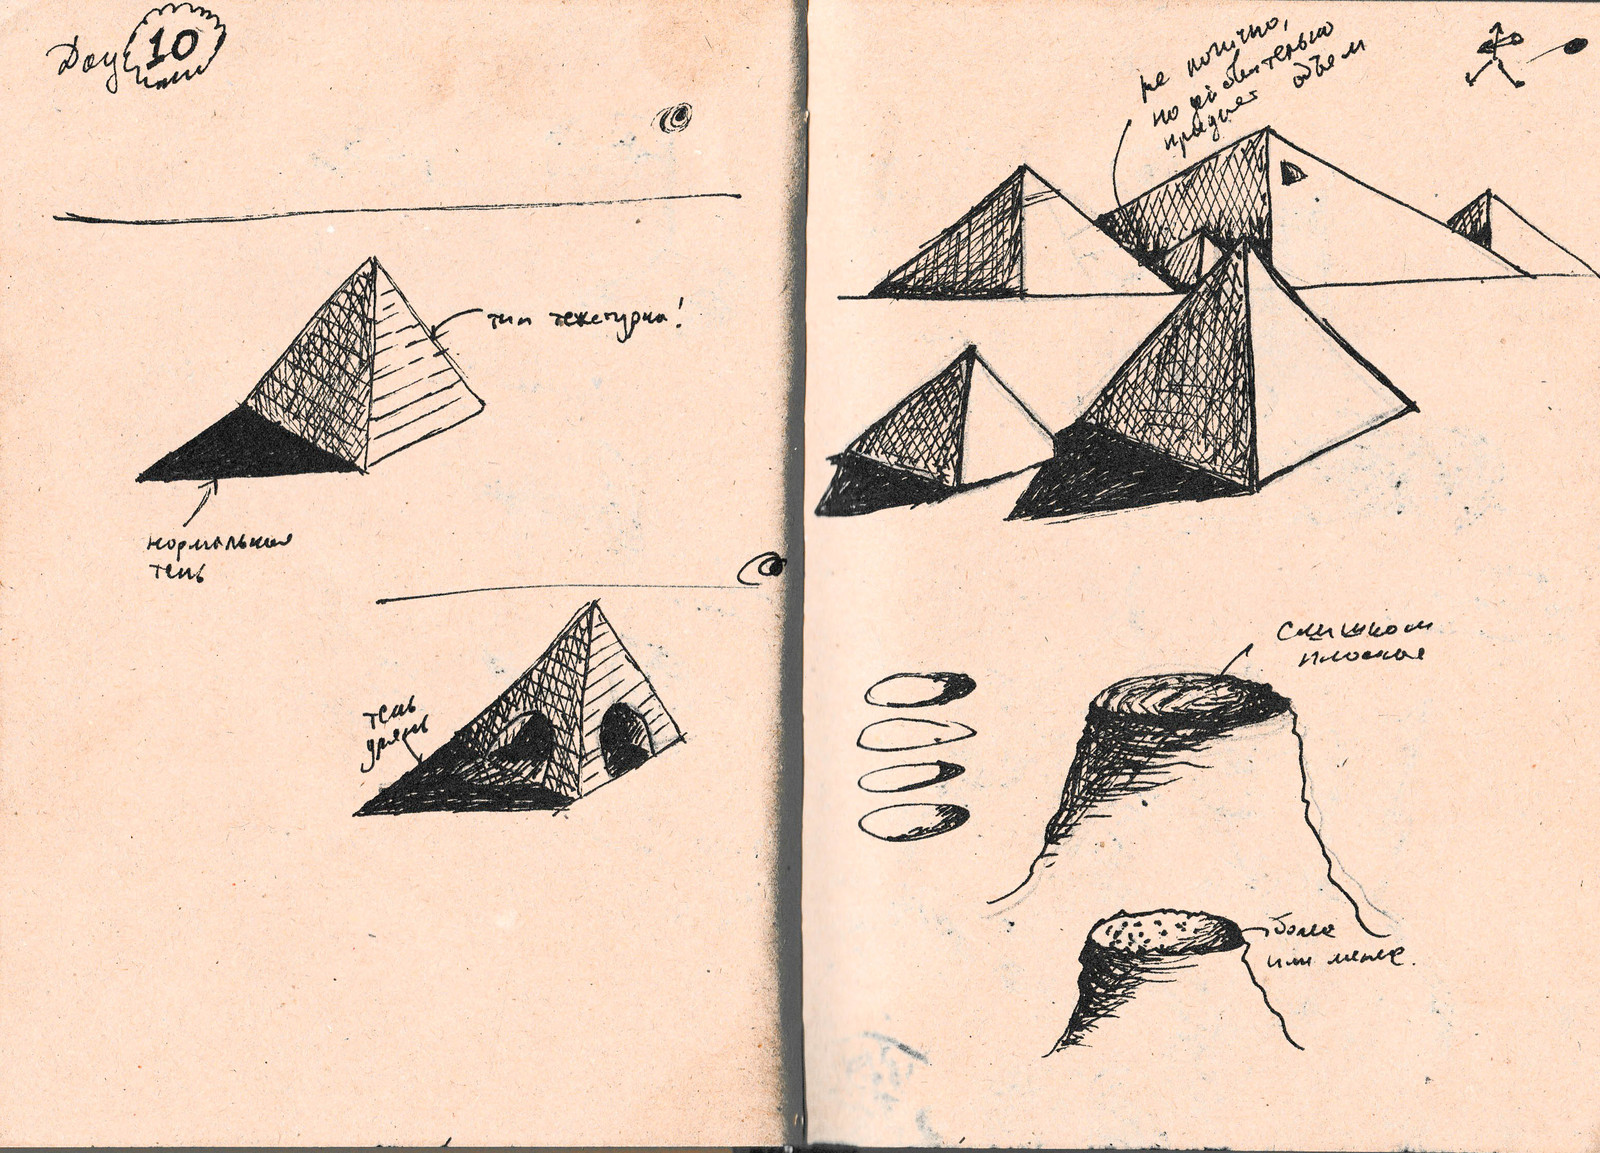 Day 10
тип текстурка!
нормальная
тень
тень
дрянь
не логично,
но действительно
придает объем
слишком
плоское
более
или менее.